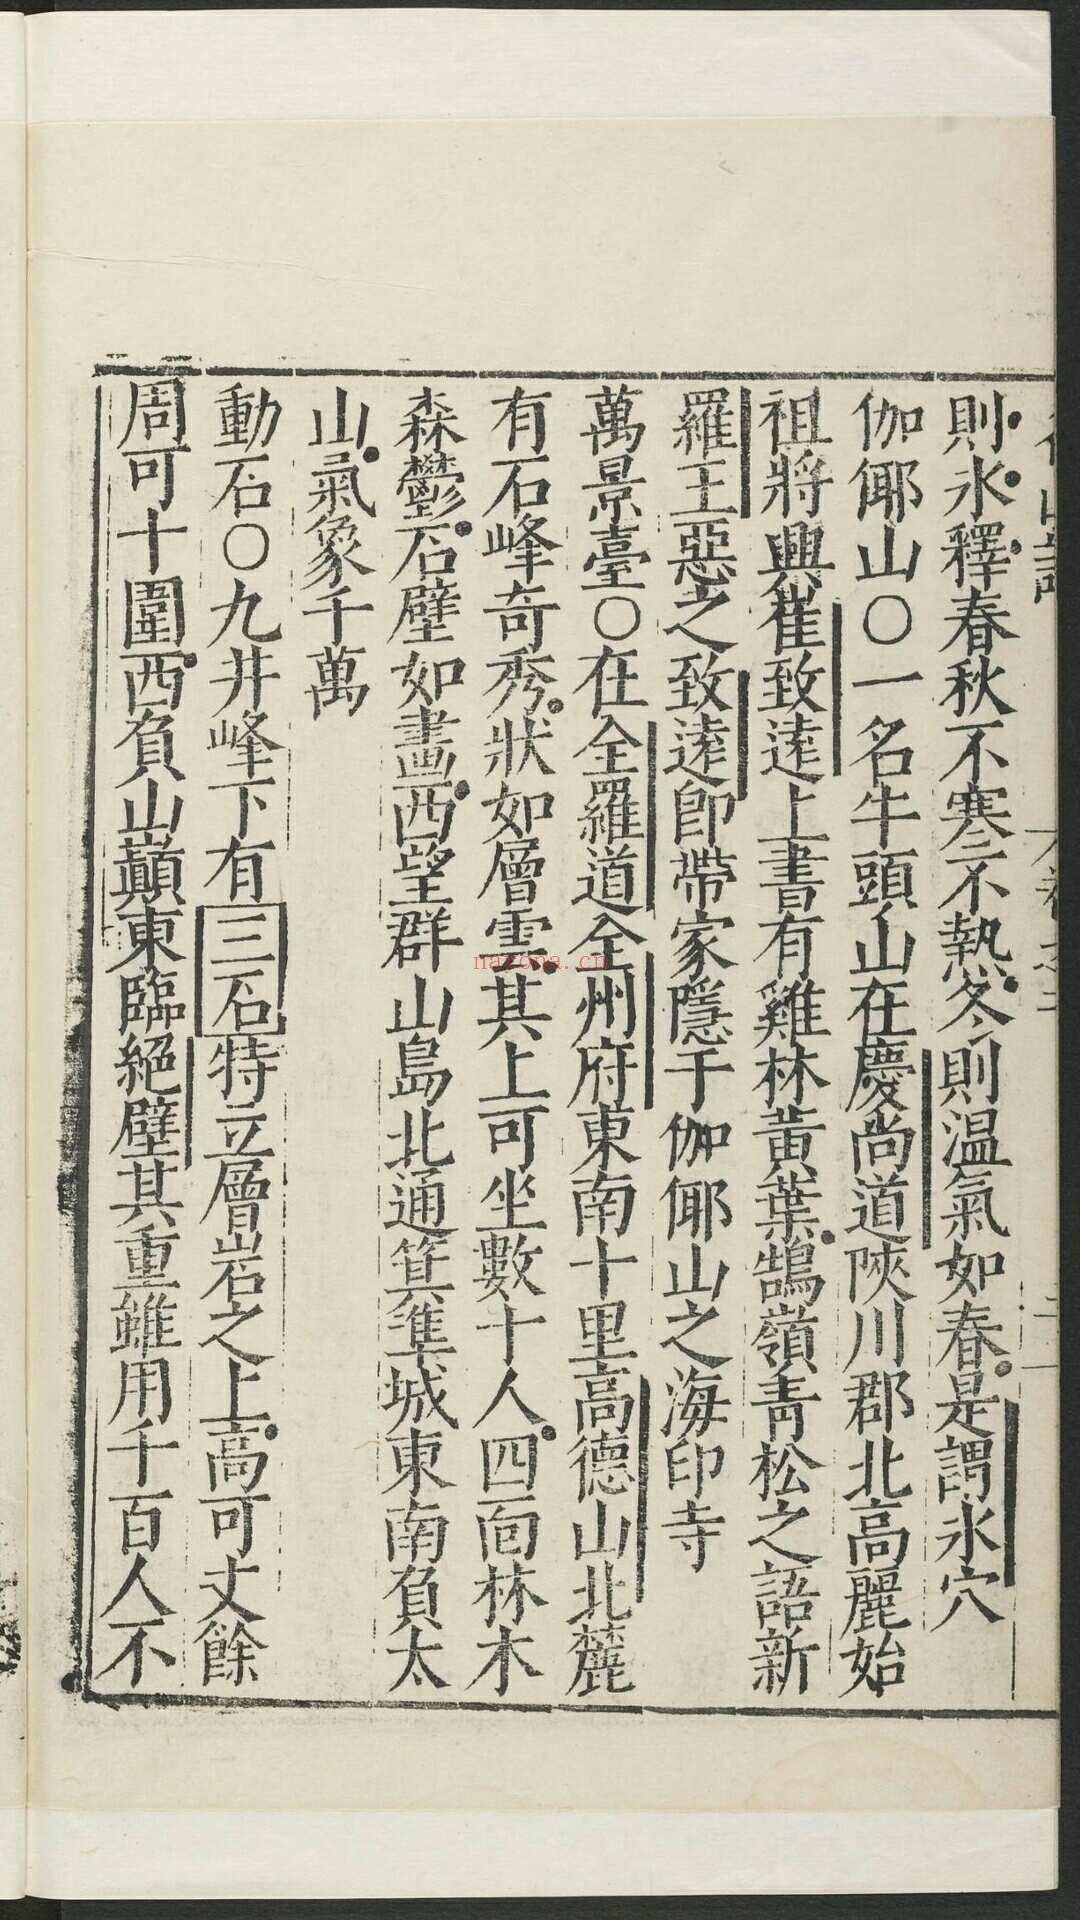 則氷釋春秋不寒不熱冬則温氣如春是謂氷穴
伽倻山○一名牛頭山在慶尚道陜川郡北高麗始
祖將興崔致遠上書有雞林黃葉鵠嶺青松之語新
羅王惡之致遠即帶家隱于伽倻山之海印寺
萬景臺○在全羅道全州府東南十里高德山北麓
有石峰奇秀狀如層雲其上可坐數十人四面林木
森鬱石壁如畫西望群山島北通箕準城東南負太
山氣象千萬
動石○九井峰下有三石特立層岩之上高可丈餘
周可十圍西負山巔東臨絕壁其重雖用千百人不
nayona.cn